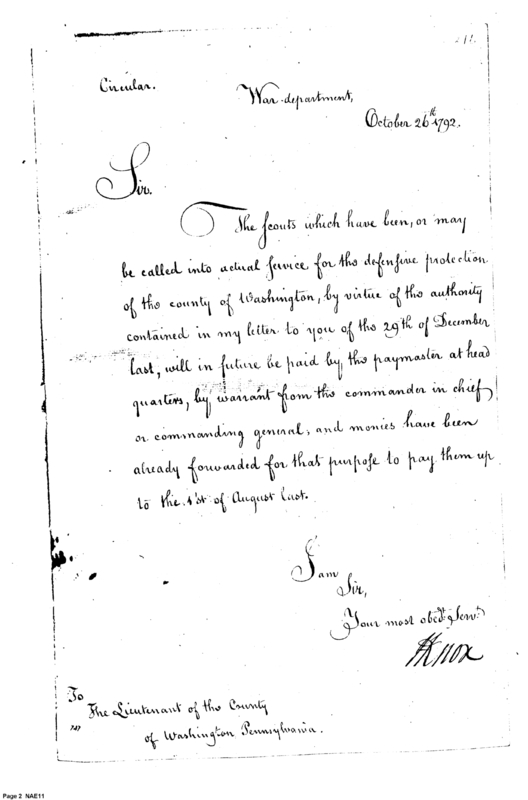 Circular.
War department,
October 26th 1792.
Sir.
The Scouts which have been, or may
be called into actual Service for the defensive protection
of the county of Washington, by virtue of the authority
contained in my letter to you of the 29th of December
last, will in future be paid by, the paymaster at head
quarters, by warrant from the commander in chief
or commanding general; and monies have been
already forwarded for that purpose to pay them up
to the 1st of August last.
I am
Sir,
Your most obedt. Servt.
HKnox
To
The Lieutenant of the County
of Washington Pennsylvania.
Page 2 NAE11